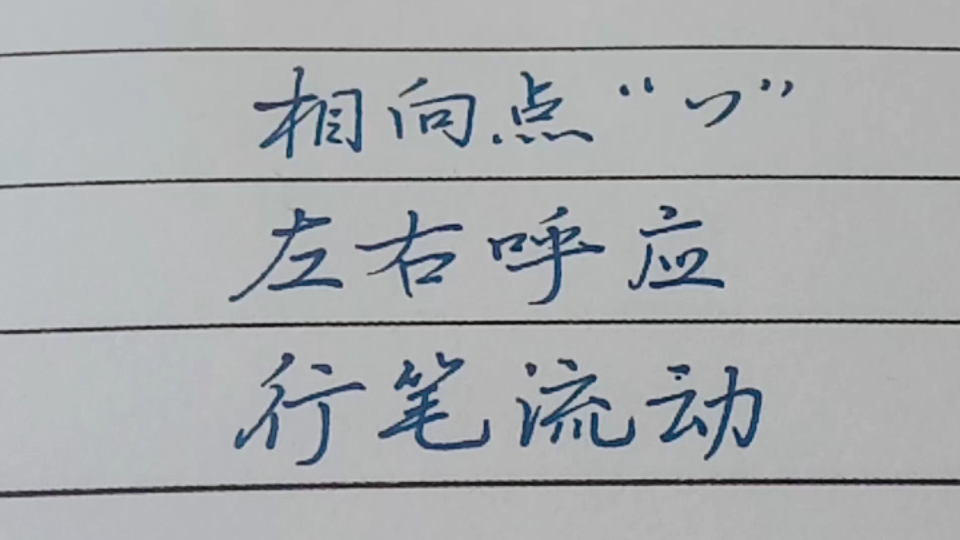 相向点“丷”
左右呼应
行笔流动